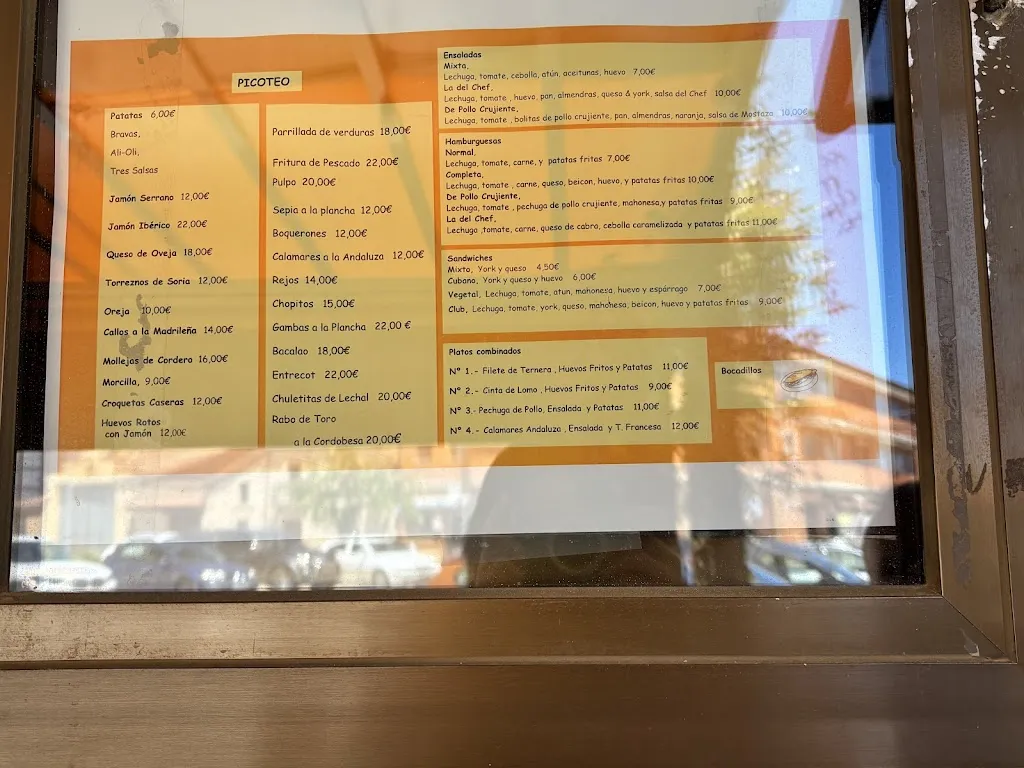 PICOTEO
Patatas 6,00€
Bravas,
Ali-Oli,
Tres Salsas
Jamón Serrano 12,00€
Jamón Ibérico 22,00€
Queso de Oveja 18,00€
Torreznos de Soria 12,00€
Oreja 10,00€
Callos a la Madrileña 14,00€
Mollejas de Cordero 16,00€
Morcilla, 9,00€
Croquetas Caseras 12,00€
Huevos Rotos
con Jamón 12,00€
Parrillada de verduras 18,00€
Fritura de Pescado 22,00€
Pulpo 20,00€
Sepia a la plancha 12,00€
Boquerones 12,00€
Calamares a la Andaluza 12,00€
Rejos 14,00€
Chopitos 15,00€
Gambas a la Plancha 22,00 €
Bacalao 18,00€
Entrecot 22,00€
Chuletitas de Lechal 20,00€
Rabo de Toro
a la Cordobesa 20,00€
Ensaladas
Mixta,
Lechuga, tomate, cebolla, atún, aceitunas, huevo 7,00€
La del Chef,
Lechuga, tomate , huevo, pan, almendras, queso & york, salsa del Chef 10,00€
De Pollo Crujiente,
Lechuga, tomate , bolitas de pollo crujiente, pan, almendras, naranja, salsa de Mostaza 10,00€
Hamburguesas
Normal,
Lechuga, tomate, carne, y patatas fritas 7,00€
Completa,
Lechuga, tomate , carne, queso, beicon, huevo, y patatas fritas 10,00€
De Pollo Crujiente,
Lechuga, tomate , pechuga de pollo crujiente, mahonesa,y patatas fritas 9,00€
La del Chef,
Lechuga ,tomate, carne, queso de cabra, cebolla caramelizada y patatas fritas 11,00€
Sandwiches
Mixto, York y queso 4,50€
Cubano, York y queso y huevo 6,00€
Vegetal, Lechuga, tomate, atun, mahonesa, huevo y espárrago 7,00€
Club, Lechuga, tomate, york, queso, mahonesa, beicon, huevo y patatas fritas 9,00€
Platos combinados
Nº 1.- Filete de Ternera , Huevos Fritos y Patatas 11,00€
Nº 2.- Cinta de Lomo , Huevos Fritos y Patatas 9,00€
Nº 3.- Pechuga de Pollo, Ensalada y Patatas 11,00€
Nº 4.- Calamares Andaluza , Ensalada y T. Francesa 12,00€
Bocadillos